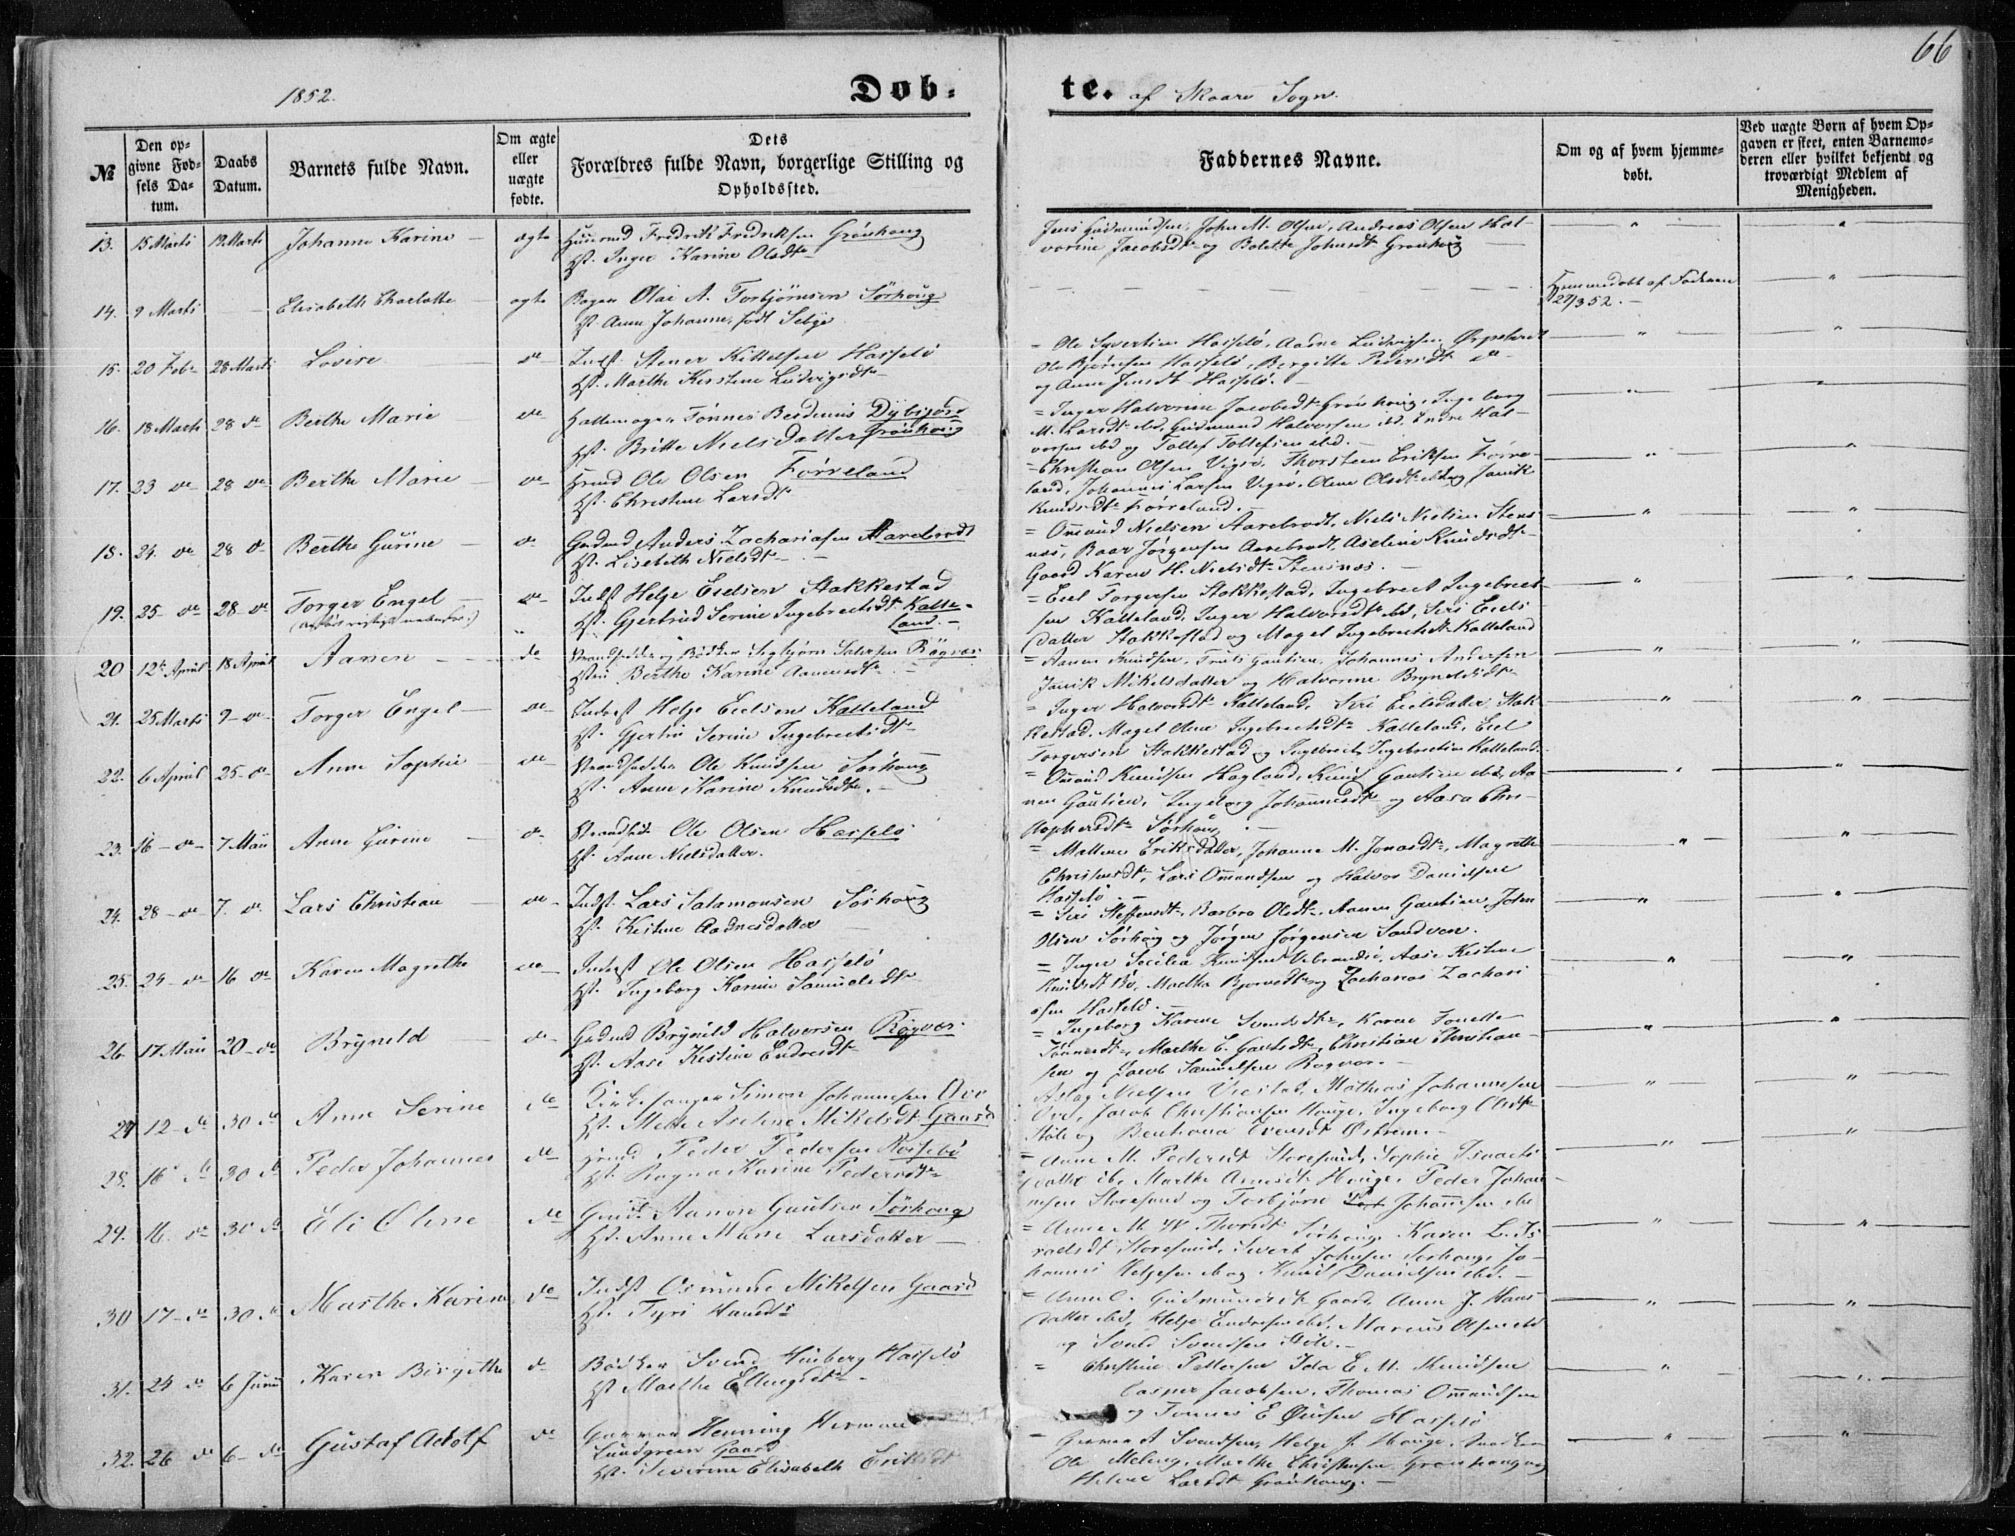 66
1852.
Døb-
te. af Skaare Sogn.
№
Den op-
givne Fød-
sels Da-
tum.
Daabs
Datum.
Barnets fulde Navn.
Om ægte
eller
uægte
fødte.
Dets
Forældres fulde Navn, borgerlige Stilling og
Opholdssted.
Faddernes Navne.
Om og af hvem hjemme-
døbt.
Ved uægte Børn af hvem Op-
gaven er skeet, enten Barnemo-
deren eller hvilket bekjendt og
troværdigt Medlem af
Menigheden.
13. 15 Marts 19 Marts Johanne Karine ægte Fredrik Fredriksen Grönhoug
Hst. Inger Karine Olsdtr
Jens Gudmundsen, John M. Olsen, Andreas Olsen Hal-
vorine Jacobsdtr og Bolette Johnsdt Grönhoug
14. 9 Marts Elisabeth Charlotte ægte Bager Olai A. Torbjörnsen Sörhoug
Hst. Anne Johanne, født Sebye
Hjemmedøbt af Faderen
27/3 52.
15. 20 Feb. 28 Marts Lovise do Indst. Stener Kittelsen Hasselö
Hst. Marthe Kirstine Ludvigsdtr
Ole Syvertsen Hasselö, Aadne Ludvigsen
Ole Bjørnsen Hasselö, Bergitte Pedersdtr do
og Anne Jensdt Hasselö.
16. 18 Marts 28 do Berthe Marie do Hattemager Tönnes Berdinius Dybsjord
Hst. Britte Nielsdatter Grönhoug
Inger Halvorine Jacobsdt Grönhoug, Ingeborg
M. Larsdt ibd, Gudmund Halvorsen ibd, Endre Hal-
vorsen ibd og Tollef Tollefsen ibd.
17. 23 do 28 do Berthe Marie do Grmd Ole Olsen Førreland
Hst. Christine Larsdt
Christian Olsen Vigsö, Thorsteen Eriksen Førre-
land, Johannes Larsen Vigsö, Olene Olsdtr ibd og Janik
Knudsdtr Førreland.
18. 24 do 28 do Berthe Gurine do Grdmd Anders Zachariasen Aarebrodt
Hst. Lisebeth Nielsdtr
Omund Nielsen Aarebrodt, Niels Nielsen Stens-
nes, Baar Jørgensen Aarebrodt, Aselene Knudsdtr
Gaard Karen H. Nielsdt Stensnes.
19. 25 do 28 do Torger Engel do Indst Helge Eielsen Stakkestad
Hst. Gjertrud Serine Ingebretsdt Kalle-
land.
Eiel Torgersen Stakkestad, Ingebret Ingebret-
sen Kalleland, Inger Halvorsdtr ibd, Siri Eiels-
datter Stakkestad og Magel Ingebretsdt Kalleland
20 12te April 18 April Aanen do Strandsidder og Bødker Sigbjörn Salvesen Rögvær
Hstru Berthe Karine Aanensdtr
Aanen Knudsen, Truls Gautsen, Johannes Andersen
Janik Mikelsdatter og Halvorine Bryneldsdt
21. 25 Marts 9 do Torger Engel do Inderst Helge Eielsen Kalleland
Hst. Gjertru Serine Ingebretsdtr
Inger Halvorsdt Kalleland, Siri Eielsdatter Stak-
kestad, Magel Olene Ingebretsdtr Kalleland, Eiel
Torgersen Stakkestad og Ingebret Ingebretsen Kalleland.
22. 6 April 25 do Anne Sophie do Strandsidder Ole Knudsen Sörhoug
Hst. Anne Karine Knudsdtr.
Omund Knudsen Hagland, Knud Gautsen ibd, Aa-
nen Gautsen, Ingeborg Johannesdtr og Aasa Chri-
stophersdtr Sörhoug.
23. 16 do 7 Mai Anne Gurine do Strands. Ole Olsen Hasselö
Hst. Anne Nielsdatter.
Mallene Eriksdatter, Johanne M. Jonasdtr, Magrethe
Christensdtr, Lars Omundsen og Halvor Danielsen
Hasselö.
24. 28 do 7. do Lars Christian do Indst. Lars Salamonsen Sörhoug
Hst. Kistine Aadnesdatter
Siri Steffensdtr, Barbro Olsdtr, Aanen Gautsen, John
Olsen Sörhoug og Jörgen Jörgensen Sandven.
25. 24 do 16 do Karen Magrethe do Inderst Ole Olsen Hasselö
Hst. Ingeborg Karine Samuelsdtr
Inger Secilia Knudsdt Vibrandsö, Aase Kistine
Knudsdt Bö, Martha Bjornsdtr og Zacharias Zachari-
asen Hasselö.
26. 17 Mai 20 do Bryneld do Grdmd Bryneld Halvorsen Rögvær
Hst. Aase Kistine Endresdtr
Ingeborg Karine Svendsdtr, Karen Tonette
Tönnesdtr, Marthe E. Gautsdtr, Christian Christian-
sen og Jacob Samuelsen Rogvær.
27 12 do 30 do Anne Serine do Kirkesanger Simon Johannesen Qvo
Hst. Mette Aselene Mikelsdt Gaard
Aslag Nielsen Vrestad, Mathias Johannesen
Jacob Christiansen Houge, Ingeborg Olsdtr
Støle og Bentiana Svensdt Östrem.
28. 16 do 30 do Peder Johannes do Grmd Peder Pedersen Rossebö
Hst. Ragna Karine Pedersdtr
Anne M. Pedersdt Storesund, Sophie Isaacs-
datter ib., Marthe Arnesdt Houge, Peder Johan-
nesen Storesund og Torbjörn Johannesen ibd
29. 16. do 30 do Eli Olene do Aanon Gautsen Sörhoug
Hst. Anne Marie Larsdatter
Anne M. W. Thorsdt Sörhoug, Karen L. Is-
raelsdt Storesund, Sivert Johnsen Sorhoug, Jo-
hannes Helgesen ib og Knud Danielsen ibd.
30 17 do 30 do Marthe Karine do Indst Osmund Mikelsen Gaard
Hst. Tyri Hansdtr
Anne O. Gudmundsdt Gaard Anne J. Hans-
datter ibd, Helge Endresen ibd, Marcus Olsen ibd
og Svend Svendsen Støle.
31. 24 do 6 Juni Karen Birgithe do Bödker Svend Hasselö
Hst Marthe Ellingsdtr
Christine Pettersen Ida E. M. Knudsen
Casper Jacobsen, Thomas Omundsen
og Tønnes E Hasselö
32. 26 do 6 do Gustaf Adolf do Garver Henning Herman
Lundgreen Gaard
Hst. Severine Elisabeth Eriksdt
Svendsen, Helge J. Houge,
Ole Meling, Marthe Christensen Grönhoug og
Helene Larsdt Grönhoug.